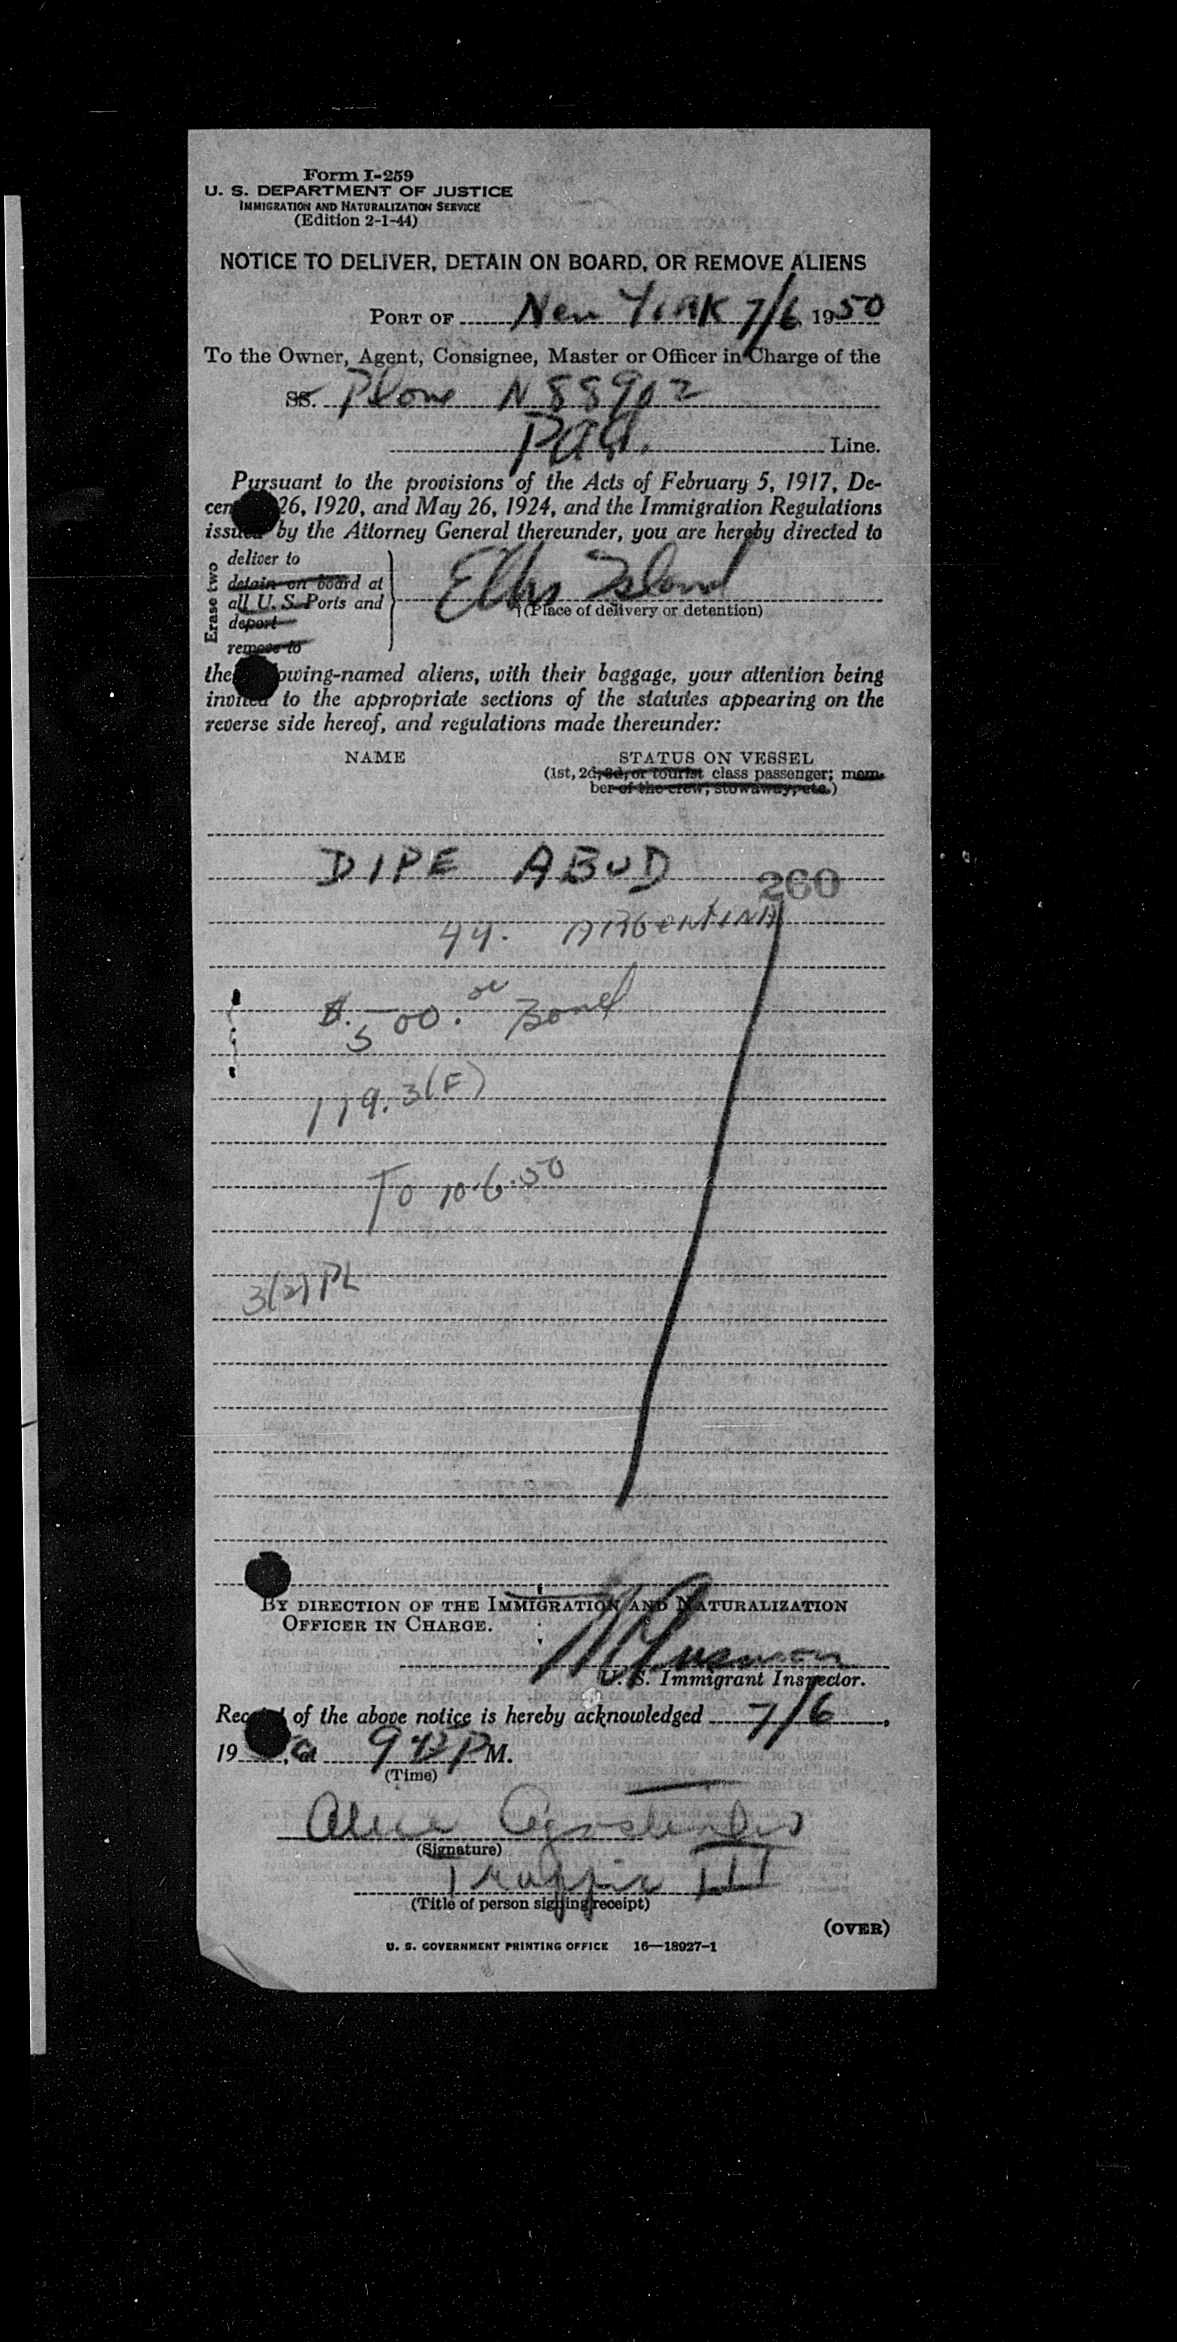 Form I-259
U. S. DEPARTMENT OF JUSTICE
IMMIGRATION AND NATURALIZATION SERVICE
(Edition 2-1-44)
NOTICE TO DELIVER, DETAIN ON BOARD, OR REMOVE ALIENS
PORT OF New York 7/6 1950
To the Owner, Agent, Consignee, Master or Officer in Charge of the
SS. Plane N 88902
Line.
Pursuant to the provisions of the Acts of February 5, 1917, De-
cem 26, 1920, and May 26, 1924, and the Immigration Regulations
issued by the Attorney General thereunder, you are hereby directed to
Erase two
deliver to
detain on board at
all U. S. Ports and
deport
remove to
Ellis Island
(Place of delivery or detention)
the owing-named aliens, with their baggage, your attention being
invited to the appropriate sections of the statutes appearing on the
reverse side hereof, and regulations made thereunder:
NAME STATUS ON VESSEL
(1st, 2d, 3d, or tourist class passenger; mem-
ber of the crew; stowaway, etc.)
DIPE ABUD
260
44. ARGENTINA
$.500. or Bond
119.3(F)
To 10.6.50
3(2) PL
BY DIRECTION OF THE IMMIGRATION AND NATURALIZATION
OFFICER IN CHARGE.
U. S. Immigrant Inspector.
Rec of the above notice is hereby acknowledged 7/6,
19 , at 9 PM.
(Time)
(Signature)
Traffic III
(Title of person signing receipt)
(OVER)
U. S. GOVERNMENT PRINTING OFFICE 16—18927-1